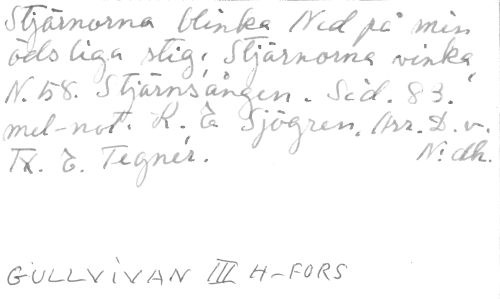 Stjärnorna blinka Ned på min
ödsliga stig, Stjärnorna vinka,
N. 58. Stjärnsången. Sid. 83.
mel-not. K. E Sjögren. Arr. D. v.
Tx. E. Tegnér. N: dh.
GULLVIVAN III H-FORS